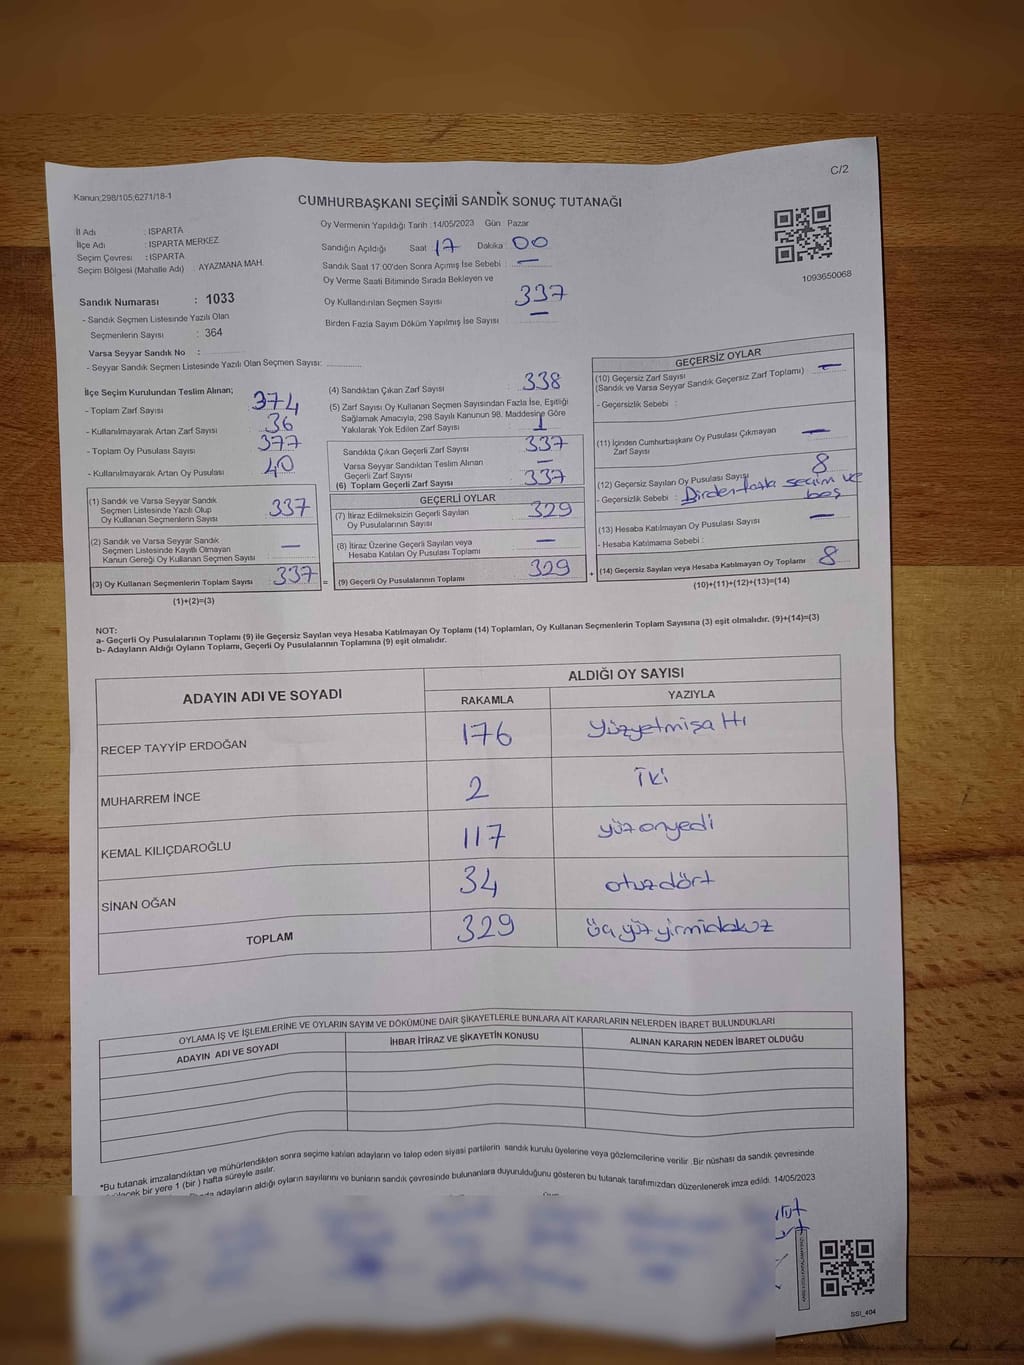 C/2
Kanun;298/105;6271/18-1
CUMHURBAŞKANI SEÇİMİ SANDIK SONUÇ TUTANAĞI
İl Adı : ISPARTA
İlçe Adı : ISPARTA MERKEZ
Seçim Çevresi : ISPARTA
Seçim Bölgesi (Mahalle Adı) : AYAZMANA MAH.
Sandık Numarası : 1033
- Sandık Seçmen Listesinde Yazılı Olan
Seçmenlerin Sayısı : 364
Varsa Seyyar Sandık No :
- Seyyar Sandık Seçmen Listesinde Yazılı Olan Seçmen Sayısı:
Oy Vermenin Yapıldığı Tarih :14/05/2023 Gün : Pazar
Sandığın Açıldığı Saat 17 Dakika 00
Sandık Saat 17:00'den Sonra Açımış İse Sebebi : —
Oy Verme Saati Bitiminde Sırada Bekleyen ve
Oy Kullandırılan Seçmen Sayısı 337
Birden Fazla Sayım Döküm Yapılmış İse Sayısı —
1093650068
İlçe Seçim Kurulundan Teslim Alınan;
- Toplam Zarf Sayısı 374
- Kullanılmayarak Artan Zarf Sayısı 36
- Toplam Oy Pusulası Sayısı 377
- Kullanılmayarak Artan Oy Pusulası 40
(1) Sandık ve Varsa Seyyar Sandık
Seçmen Listesinde Yazılı Olup
Oy Kullanan Seçmenlerin Sayısı 337
(2) Sandık ve Varsa Seyyar Sandık
Seçmen Listesinde Kayıtlı Olmayan
Kanun Gereği Oy Kullanan Seçmen Sayısı —
(3) Oy Kullanan Seçmenlerin Toplam Sayısı 337 =
(1)+(2)=(3)
(4) Sandıktan Çıkan Zarf Sayısı 338
(5) Zarf Sayısı Oy Kullanan Seçmen Sayısından Fazla İse, Eşitliği
Sağlamak Amacıyla, 298 Sayılı Kanunun 98. Maddesine Göre
Yakılarak Yok Edilen Zarf Sayısı 1
Sandıkta Çıkan Geçerli Zarf Sayısı 337
Varsa Seyyar Sandıktan Teslim Alınan
Geçerli Zarf Sayısı —
(6) Toplam Geçerli Zarf Sayısı 337
GEÇERLİ OYLAR
(7) İtiraz Edilmeksizin Geçerli Sayılan
Oy Pusulalarının Sayısı 329
(8) İtiraz Üzerine Geçerli Sayılan veya
Hesaba Katılan Oy Pusulası Toplamı —
(9) Geçerli Oy Pusulalarının Toplamı 329 +
GEÇERSİZ OYLAR
(10) Geçersiz Zarf Sayısı —
(Sandık ve Varsa Seyyar Sandık Geçersiz Zarf Toplamı)
- Geçersizlik Sebebi :
(11) İçinden Cumhurbaşkanı Oy Pusulası Çıkmayan
Zarf Sayısı —
(12) Geçersiz Sayılan Oy Pusulası Sayısı 8
- Geçersizlik Sebebi : Birden fazla seçim ve
boş
(13) Hesaba Katılmayan Oy Pusulası Sayısı —
- Hesaba Katılmama Sebebi :
(14) Geçersiz Sayılan veya Hesaba Katılmayan Oy Toplamı 8
(10)+(11)+(12)+(13)=(14)
NOT:
a- Geçerli Oy Pusulalarının Toplamı (9) ile Geçersiz Sayılan veya Hesaba Katılmayan Oy Toplamı (14) Toplamları, Oy Kullanan Seçmenlerin Toplam Sayısına (3) eşit olmalıdır. (9)+(14)=(3)
b- Adayların Aldığı Oyların Toplamı, Geçerli Oy Pusulalarının Toplamına (9) eşit olmalıdır.
ADAYIN ADI VE SOYADI
ALDIĞI OY SAYISI
RAKAMLA YAZIYLA
RECEP TAYYİP ERDOĞAN 176 Yüzyetmişaltı
MUHARREM İNCE 2 İki
KEMAL KILIÇDAROĞLU 117 yüzonyedi
SİNAN OĞAN 34 otuzdört
TOPLAM 329 üçyüzyirmidokuz
OYLAMA İŞ VE İŞLEMLERİNE VE OYLARIN SAYIM VE DÖKÜMÜNE DAİR ŞİKAYETLERLE BUNLARA AİT KARARLARIN NELERDEN İBARET BULUNDUKLARI
ADAYIN ADI VE SOYADI İHBAR İTİRAZ VE ŞİKAYETİN KONUSU ALINAN KARARIN NEDEN İBARET OLDUĞU
*Bu tutanak imzalandıktan ve mühürlendikten sonra seçime katılan adayların ve talep eden siyasi partilerin sandık kurulu üyelerine veya gözlemcilerine verilir .Bir nüshası da sandık çevresinde
bir yere 1 (bir ) hafta süreyle asılır.
adayların aldığı oyların sayılarını ve bunların sandık çevresinde bulunanlara duyurulduğunu gösteren bu tutanak tarafımızdan düzenlenerek imza edildi. 14/05/2023
SSI_404